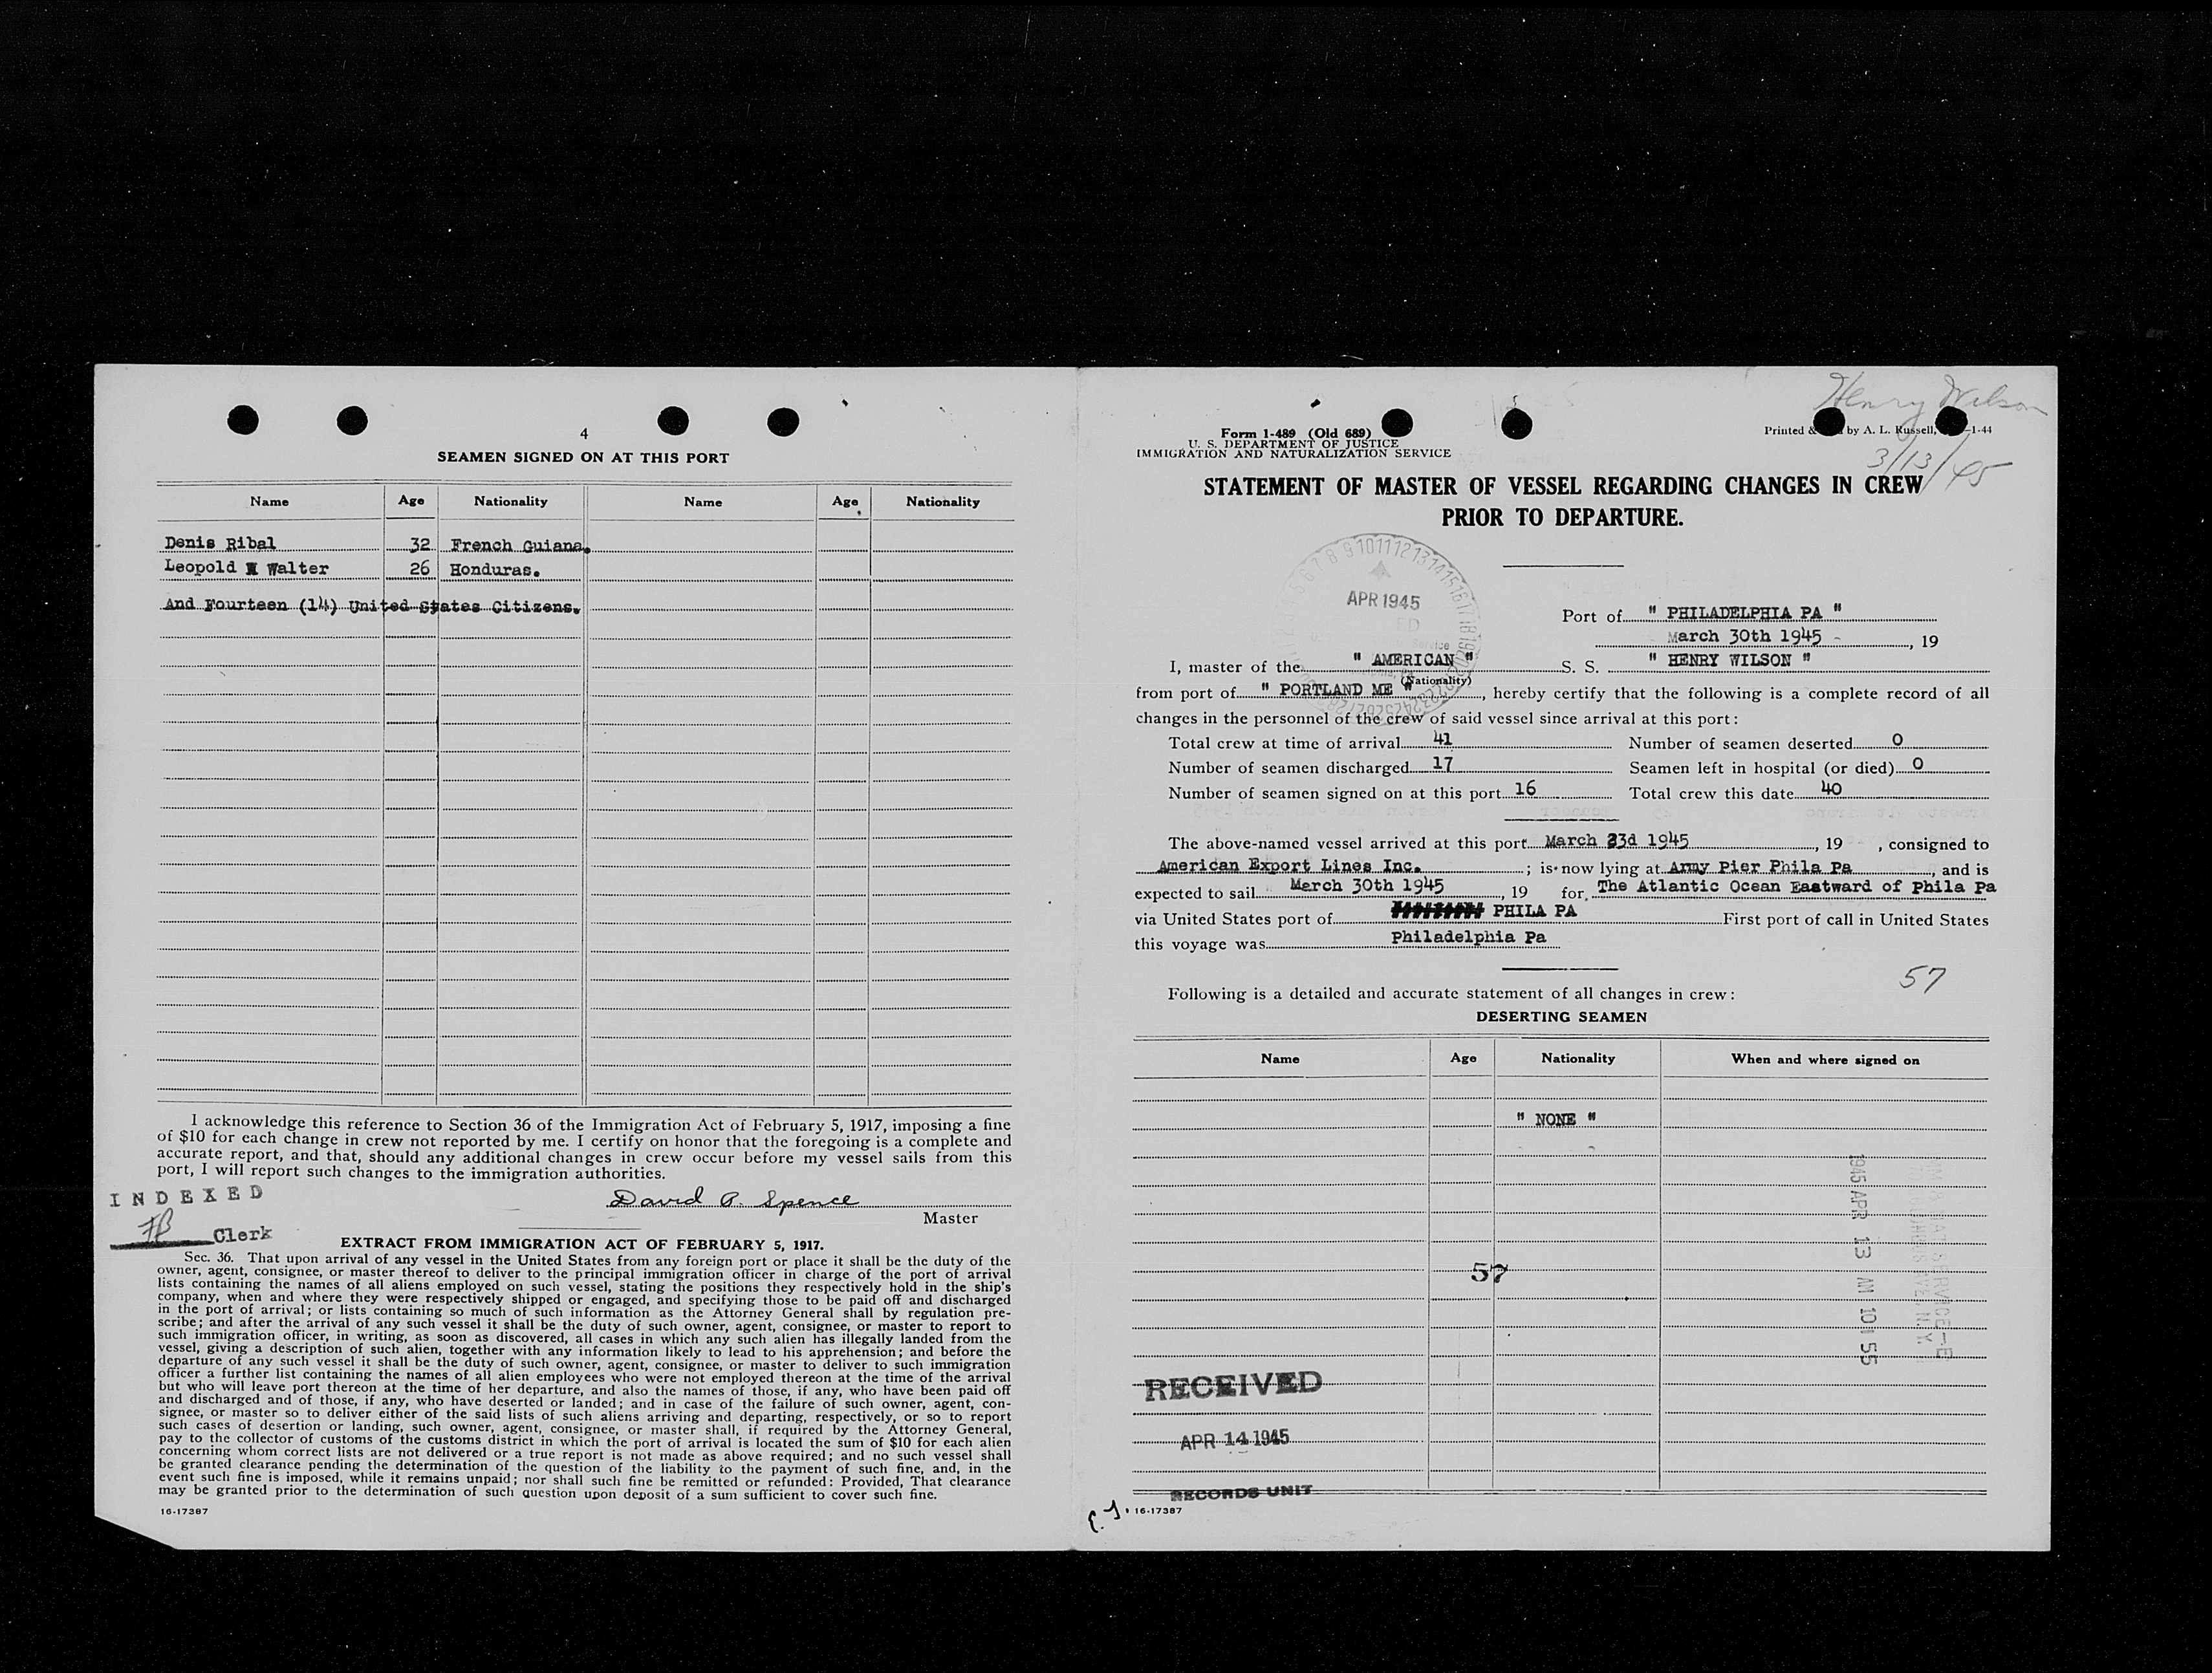 4
SEAMEN SIGNED ON AT THIS PORT
Name Age Nationality Name Age Nationality
Denis Ribal 32 French Guiana.
Leopold Walter 26 Honduras.
And Fourteen (14) United States Citizens.
I acknowledge this reference to Section 36 of the Immigration Act of February 5, 1917, imposing a fine
of $10 for each change in crew not reported by me. I certify on honor that the foregoing is a complete and
accurate report, and that, should any additional changes in crew occur before my vessel sails from this
port, I will report such changes to the immigration authorities.
INDEXED
David P. Spence
Master
Clerk
EXTRACT FROM IMMIGRATION ACT OF FEBRUARY 5, 1917.
Sec. 36. That upon arrival of any vessel in the United States from any foreign port or place it shall be the duty of the
owner, agent, consignee, or master thereof to deliver to the principal immigration officer in charge of the port of arrival
lists containing the names of all aliens employed on such vessel, stating the positions they respectively hold in the ship's
company, when and where they were respectively shipped or engaged, and specifying those to be paid off and discharged
in the port of arrival; or lists containing so much of such information as the Attorney General shall by regulation pre-
scribe; and after the arrival of any such vessel it shall be the duty of such owner, agent, consignee, or master to report to
such immigration officer, in writing, as soon as discovered, all cases in which any such alien has illegally landed from the
vessel, giving a description of such alien, together with any information likely to lead to his apprehension; and before the
departure of any such vessel it shall be the duty of such owner, agent, consignee, or master to deliver to such immigration
officer a further list containing the names of all alien employees who were not employed thereon at the time of the arrival
but who will leave port thereon at the time of her departure, and also the names of those, if any, who have been paid off
and discharged and of those, if any, who have deserted or landed; and in case of the failure of such owner, agent, con-
signee, or master so to deliver either of the said lists of such aliens arriving and departing, respectively, or so to report
such cases of desertion or landing, such owner, agent, consignee, or master shall, if required by the Attorney General,
pay to the collector of customs of the customs district in which the port of arrival is located the sum of $10 for each alien
concerning whom correct lists are not delivered or a true report is not made as above required; and no such vessel shall
be granted clearance pending the determination of the question of the liability to the payment of such fine, and, in the
event such fine is imposed, while it remains unpaid; nor shall such fine be remitted or refunded: Provided, That clearance
may be granted prior to the determination of such question upon deposit of a sum sufficient to cover such fine.
16-17387
Henry Wilson
3/13/45
Form 1-489 (Old 689)
U. S. DEPARTMENT OF JUSTICE
IMMIGRATION AND NATURALIZATION SERVICE
Printed & by A. L. Russell, -1-44
STATEMENT OF MASTER OF VESSEL REGARDING CHANGES IN CREW
PRIOR TO DEPARTURE.
APR 1945
Port of " PHILADELPHIA PA "
March 30th 1945 , 19
I, master of the " AMERICAN " S. S. " HENRY WILSON "
(Nationality)
from port of " PORTLAND ME " , hereby certify that the following is a complete record of all
changes in the personnel of the crew of said vessel since arrival at this port:
Total crew at time of arrival 41 Number of seamen deserted 0
Number of seamen discharged 17 Seamen left in hospital (or died) 0
Number of seamen signed on at this port 16 Total crew this date 40
The above-named vessel arrived at this port March 23d 1945 , 19 , consigned to
American Export Lines Inc. ; is now lying at Army Pier Phila Pa , and is
expected to sail March 30th 1945 , 19 for The Atlantic Ocean Eastward of Phila Pa
via United States port of PHILA PA First port of call in United States
this voyage was Philadelphia Pa
57
Following is a detailed and accurate statement of all changes in crew:
DESERTING SEAMEN
Name Age Nationality When and where signed on
" NONE "
1945 APR 13 AM 10 55
57
RECEIVED
APR 14 1945
RECORDS UNIT
16-17387